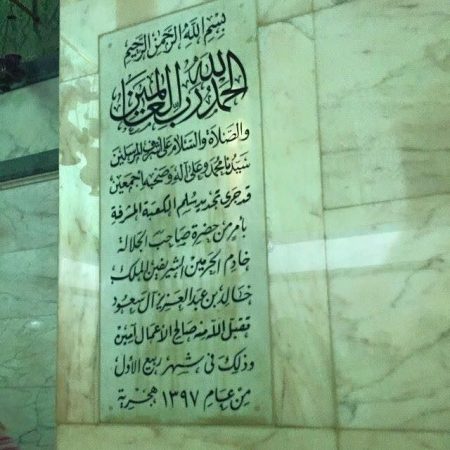 بسم الله الرحمن الرحيم
الحمد لله رب العالمين
والصلاة والسلام على أشرف المرسلين
سيدنا محمد وعلى آله وصحبه أجمعين
قد جرى تجديد سلم الكعبة المشرفة
بأمر من حضرة صاحب الجلالة
خادم الحرمين الشريفين الملك
خالد بن عبد العزيز آل سعود
فتقبل الله منه صالح الأعمال آمين
وذلك في شهر ربيع الأول
من عام ١٣٩٧ هجرية